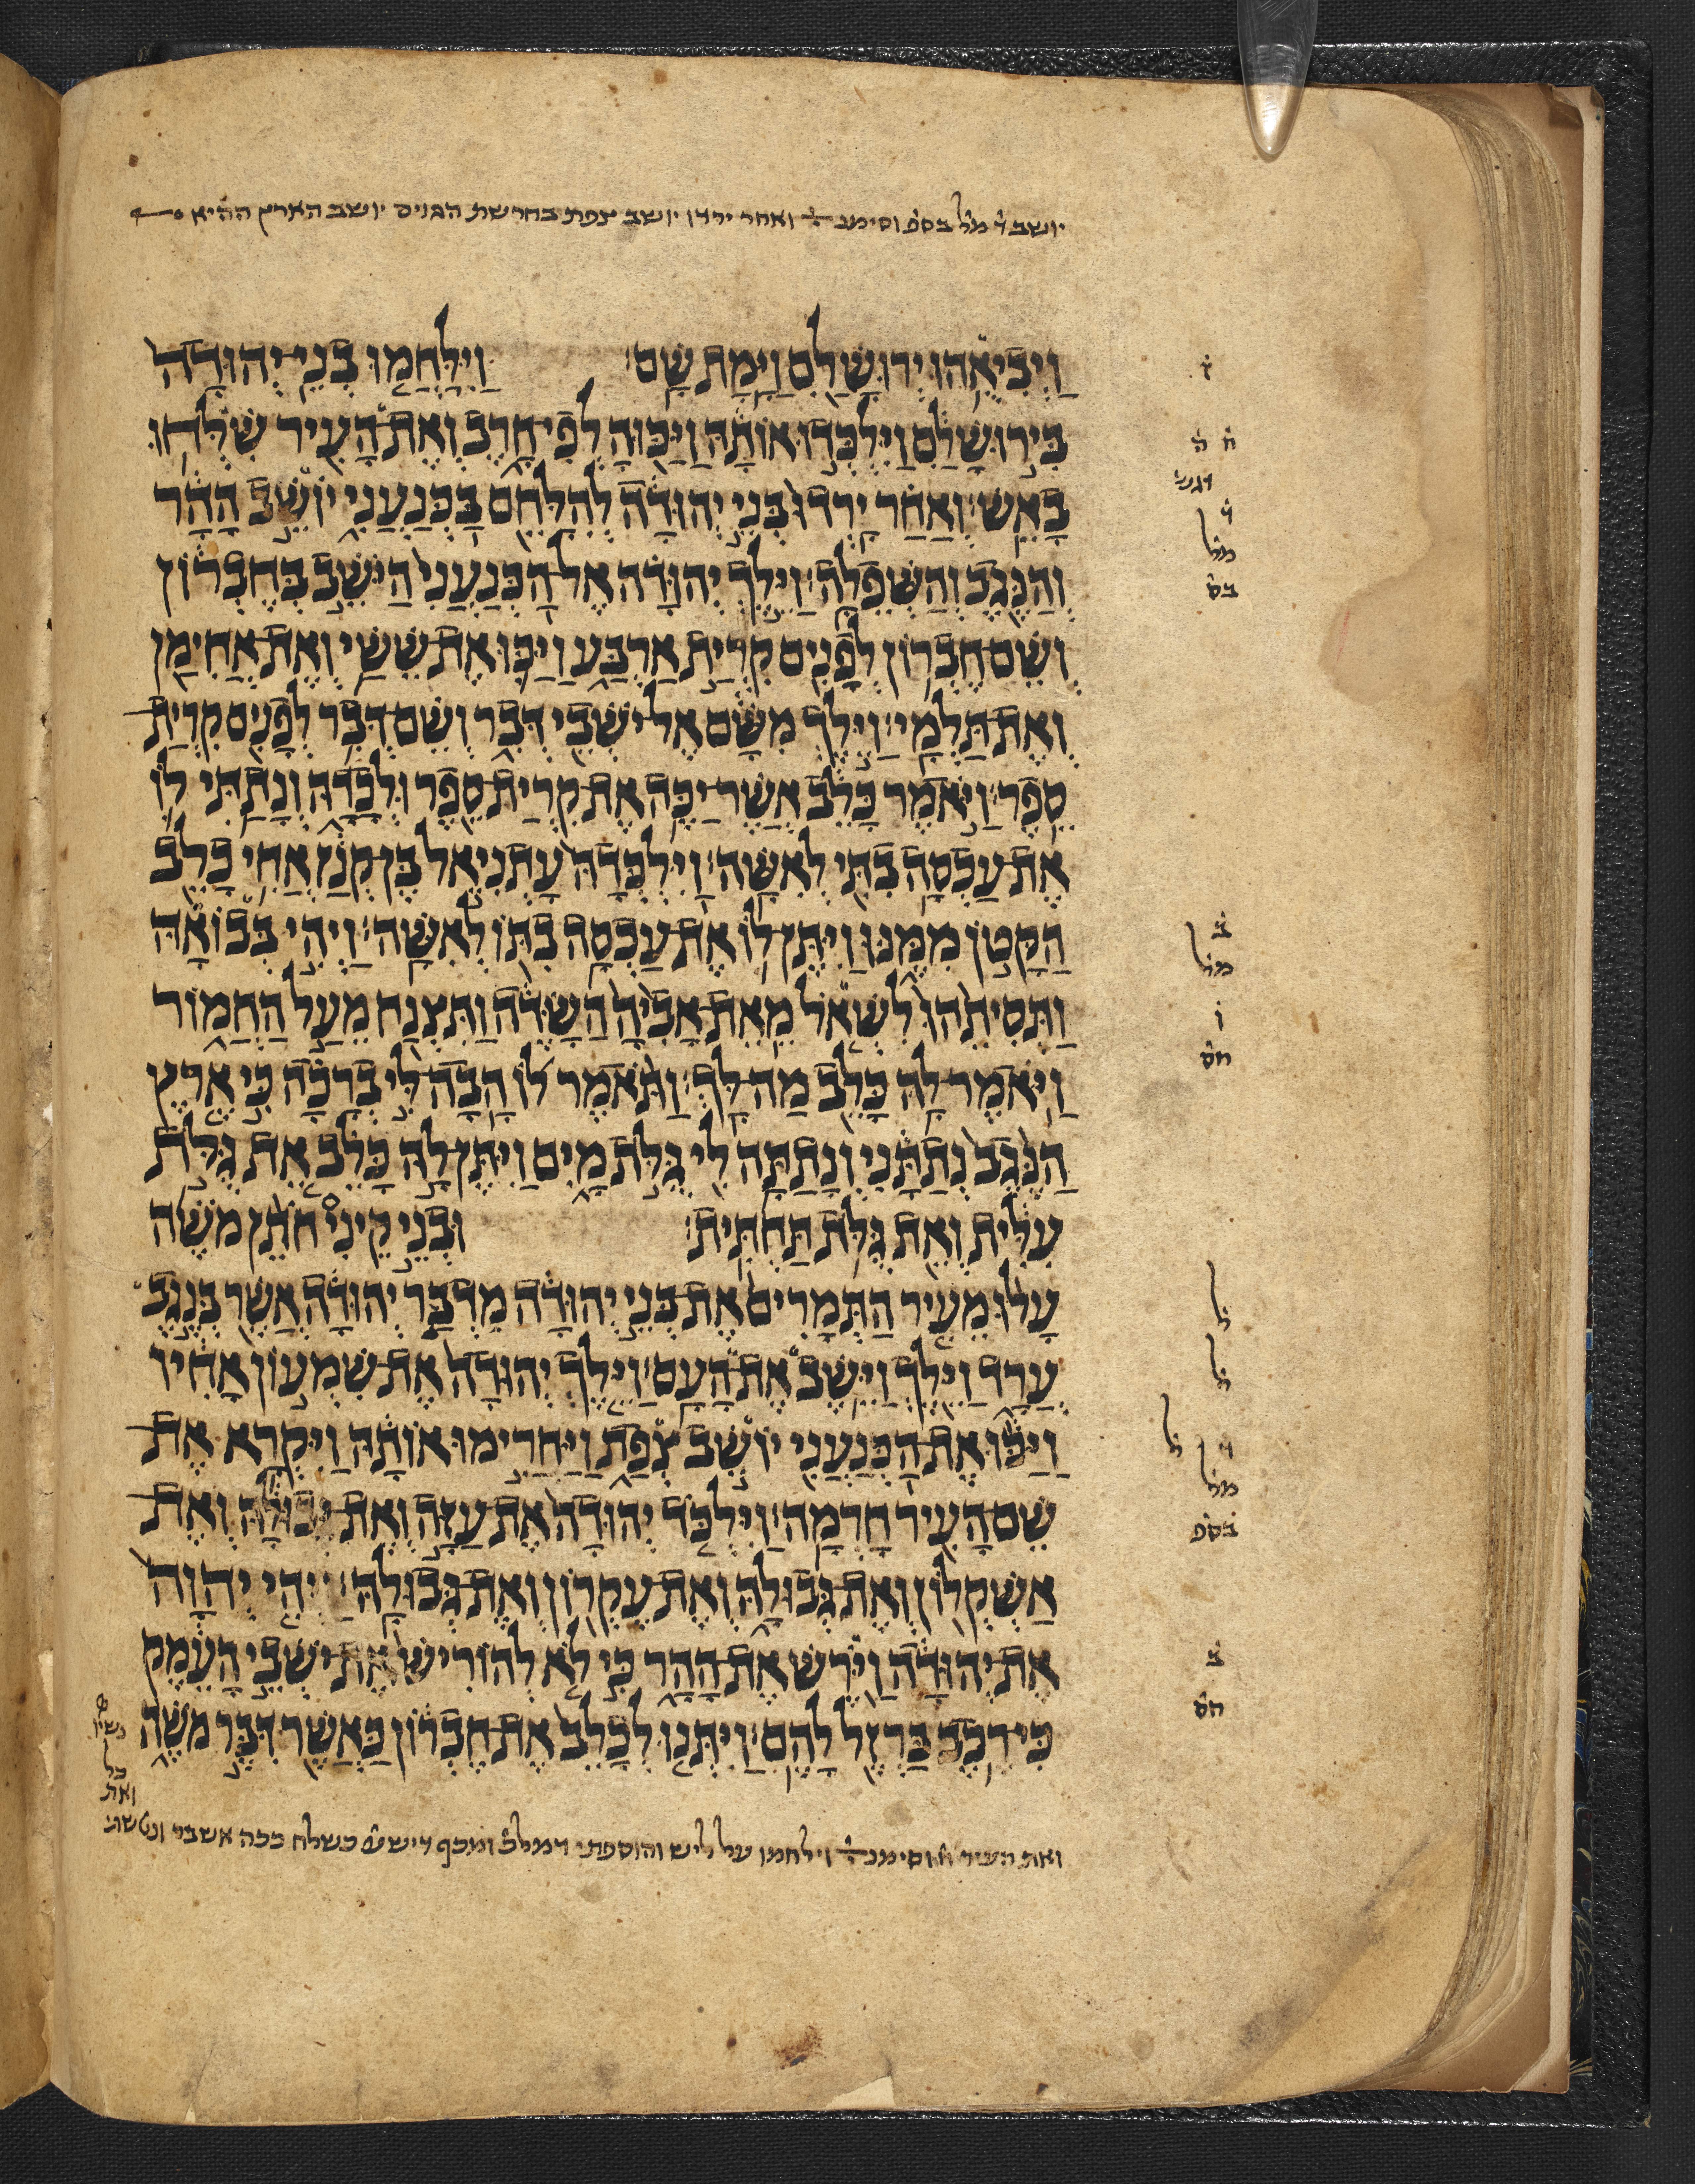 יושב ד֗ מל֗ בספ֗ וסימנ֗ ואחר ירדו יושב צפת בחרשת הגוים יושב הארץ ההיא
וַיְבִיאֻהוּ יְרוּשָׁלִַם וַיָּמָת שָׁם׃ וַיִּלָּחֲמוּ בְנֵי־יְהוּדָה
בִּירוּשָׁלִַם וַיִּלְכְּדוּ אוֹתָהּ וַיַּכּוּהָ לְפִי־חָרֶב וְאֶת־הָעִיר שִׁלְּחוּ
בָאֵשׁ׃ וְאַחַר יָרְדוּ בְּנֵי יְהוּדָה לְהִלָּחֵם בַּכְּנַעֲנִי יוֹשֵׁב הָהָר
וְהַנֶּגֶב וְהַשְּׁפֵלָה׃ וַיֵּלֶךְ יְהוּדָה אֶל־הַכְּנַעֲנִי הַיֹּשֵׁב בְּחֶבְרוֹן
וְשֵׁם־חֶבְרוֹן לְפָנִים קִרְיַת אַרְבַּע וַיַּכּוּ אֶת־שֵׁשַׁי וְאֶת־אֲחִימַן
וְאֶת־תַּלְמָי׃ וַיֵּלֶךְ מִשָּׁם אֶל־יֹשְׁבֵי דְּבִר וְשֵׁם־דְּבִר לְפָנִים קִרְיַת־
סֵפֶר׃ וַיֹּאמֶר כָּלֵב אֲשֶׁר־יַכֶּה אֶת־קִרְיַת־סֵפֶר וּלְכָדָהּ וְנָתַתִּי לוֹ
אֶת־עַכְסָה בִתִּי לְאִשָּׁה׃ וַיִּלְכְּדָהּ עָתְנִיאֵל בֶּן־קְנַז אֲחִי כָלֵב
הַקָּטֹן מִמֶּנּוּ וַיִּתֶּן־לוֹ אֶת־עַכְסָה בִתּוֹ לְאִשָּׁה׃ וַיְהִי בְּבוֹאָהּ
וַתְּסִיתֵהוּ לִשְׁאֹל מֵאֵת־אָבִיהָ הַשָּׂדֶה וַתִּצְנַח מֵעַל הַחֲמוֹר
וַיֹּאמֶר־לָהּ כָּלֵב מַה־לָּךְ׃ וַתֹּאמֶר לוֹ הָבָה־לִּי בְרָכָה כִּי אֶרֶץ
הַנֶּגֶב נְתַתָּנִי וְנָתַתָּה לִי גֻּלֹּת מָיִם וַיִּתֶּן־לָהּ כָּלֵב אֵת גֻּלֹּת
עִלִּית וְאֵת גֻּלֹּת תַּחְתִּית׃ וּבְנֵי קֵינִי חֹתֵן מֹשֶׁה
עָלוּ מֵעִיר הַתְּמָרִים אֶת־בְּנֵי יְהוּדָה מִדְבַּר יְהוּדָה אֲשֶׁר בְּנֶגֶב
עֲרָד וַיֵּלֶךְ וַיֵּשֶׁב אֶת־הָעָם׃ וַיֵּלֶךְ יְהוּדָה אֶת־שִׁמְעוֹן אָחִיו
וַיַּכּוּ אֶת־הַכְּנַעֲנִי יוֹשֵׁב צְפַת וַיַּחֲרִימוּ אוֹתָהּ וַיִּקְרָא אֶת־
שֵׁם־הָעִיר חָרְמָה׃ וַיִּלְכֹּד יְהוּדָה אֶת־עַזָּה וְאֶת־גְּבוּלָהּ וְאֶת־
אַשְׁקְלוֹן וְאֶת־גְּבוּלָהּ וְאֶת־עֶקְרוֹן וְאֶת־גְּבוּלָהּ׃ וַיְהִי יְהוָה
אֶת־יְהוּדָה וַיֹּרֶשׁ אֶת־הָהָר כִּי לֹא לְהוֹרִישׁ אֶת־יֹשְׁבֵי הָעֵמֶק
כִּי־רֶכֶב בַּרְזֶל לָהֶם׃ וַיִּתְּנוּ לְכָלֵב אֶת־חֶבְרוֹן כַּאֲשֶׁר דִּבֶּר מֹשֶׁה
ז֗
ח֗ ה֗
דגש֗
ד֗
מל֗
בס֗
ב֗
מל֗
ו֗
חס֗
ל֗
ל֗
ל֗
ד֗
מל֗
בספ֗
ב֗
חס֗
ואת העיר